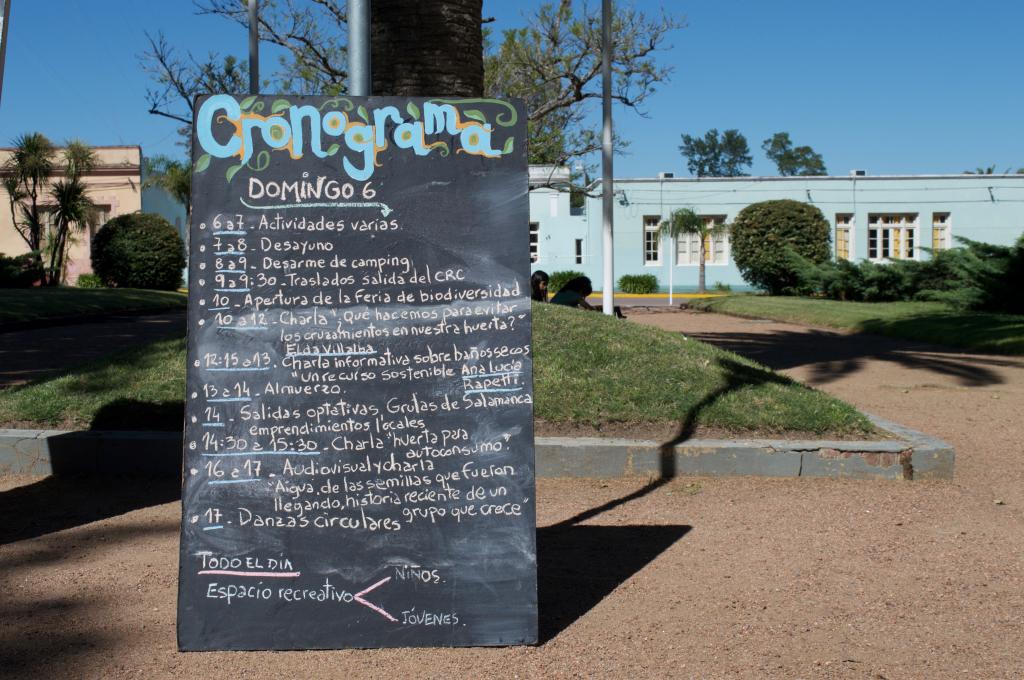 Cronograma
DOMINGO 6
• 6 a 7. Actividades varias.
• 7 a 8 - Desayuno
• 8 a 9 - Desarme de camping
• 9 a 9:30 - Traslados salida del CRC
• 10 - Apertura de la Feria de biodiversidad
• 10 a 12 - Charla "¿Qué hacemos para evitar
los cruzamientos en nuestra huerta?"
Elda Villalba
• 12:15 a 13 - Charla informativa sobre baños secos
"un recurso sostenible Ana Lucía
Rapetti.
• 13 a 14 - Almuerzo.
• 14 - Salidas optativas, Grutas de Salamanca
emprendimientos locales
• 14:30 a 15:30 - Charla "huerta para
autoconsumo".
• 16 a 17 - Audiovisual y charla
"Aigua, de las semillas que fueron
llegando, historia reciente de un
grupo que crece"
• 17 - Danzas circulares
TODO EL DÍA
Espacio recreativo
NIÑOS.
JÓVENES.